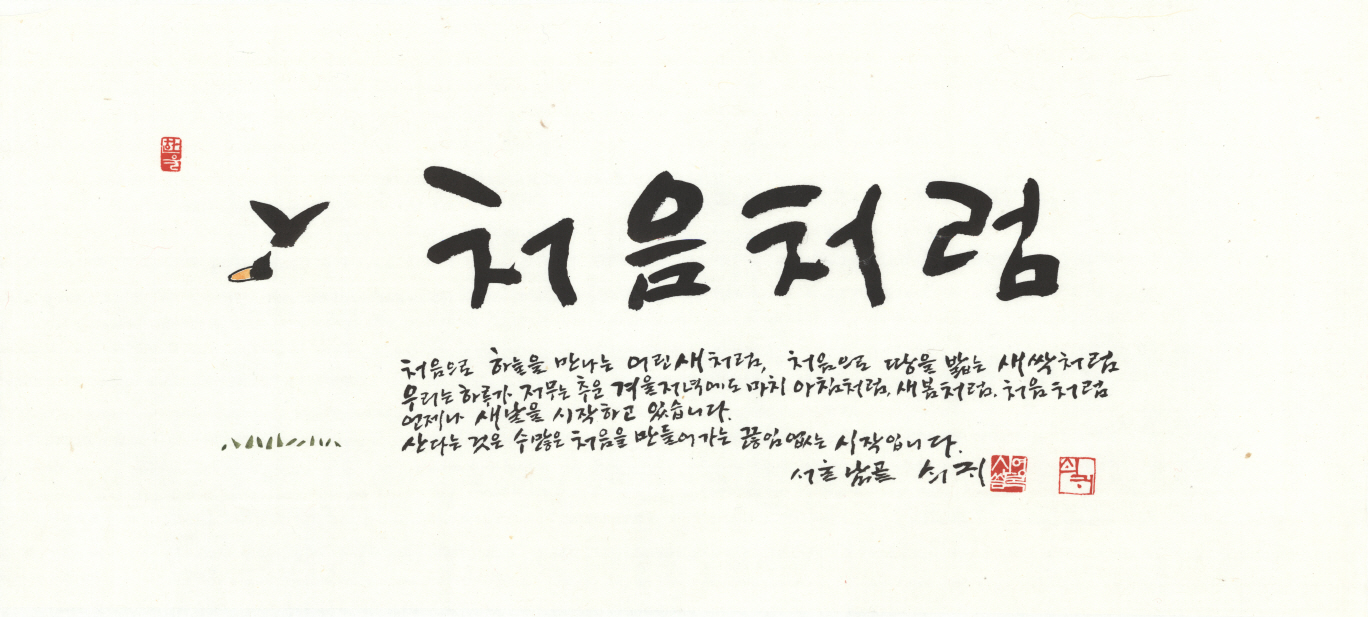 처음처럼
처음으로 하늘을 만나는 어린새처럼, 처음으로 땅을 밟는 새싹처럼
우리는 하루가 저무는 추운 겨울저녁에도 마치 아침처럼, 새봄처럼, 처음처럼
언제나 새날을 시작하고 있습니다.
산다는 것은 수많은 처음을 만들어가는 끊임없는 시작입니다.